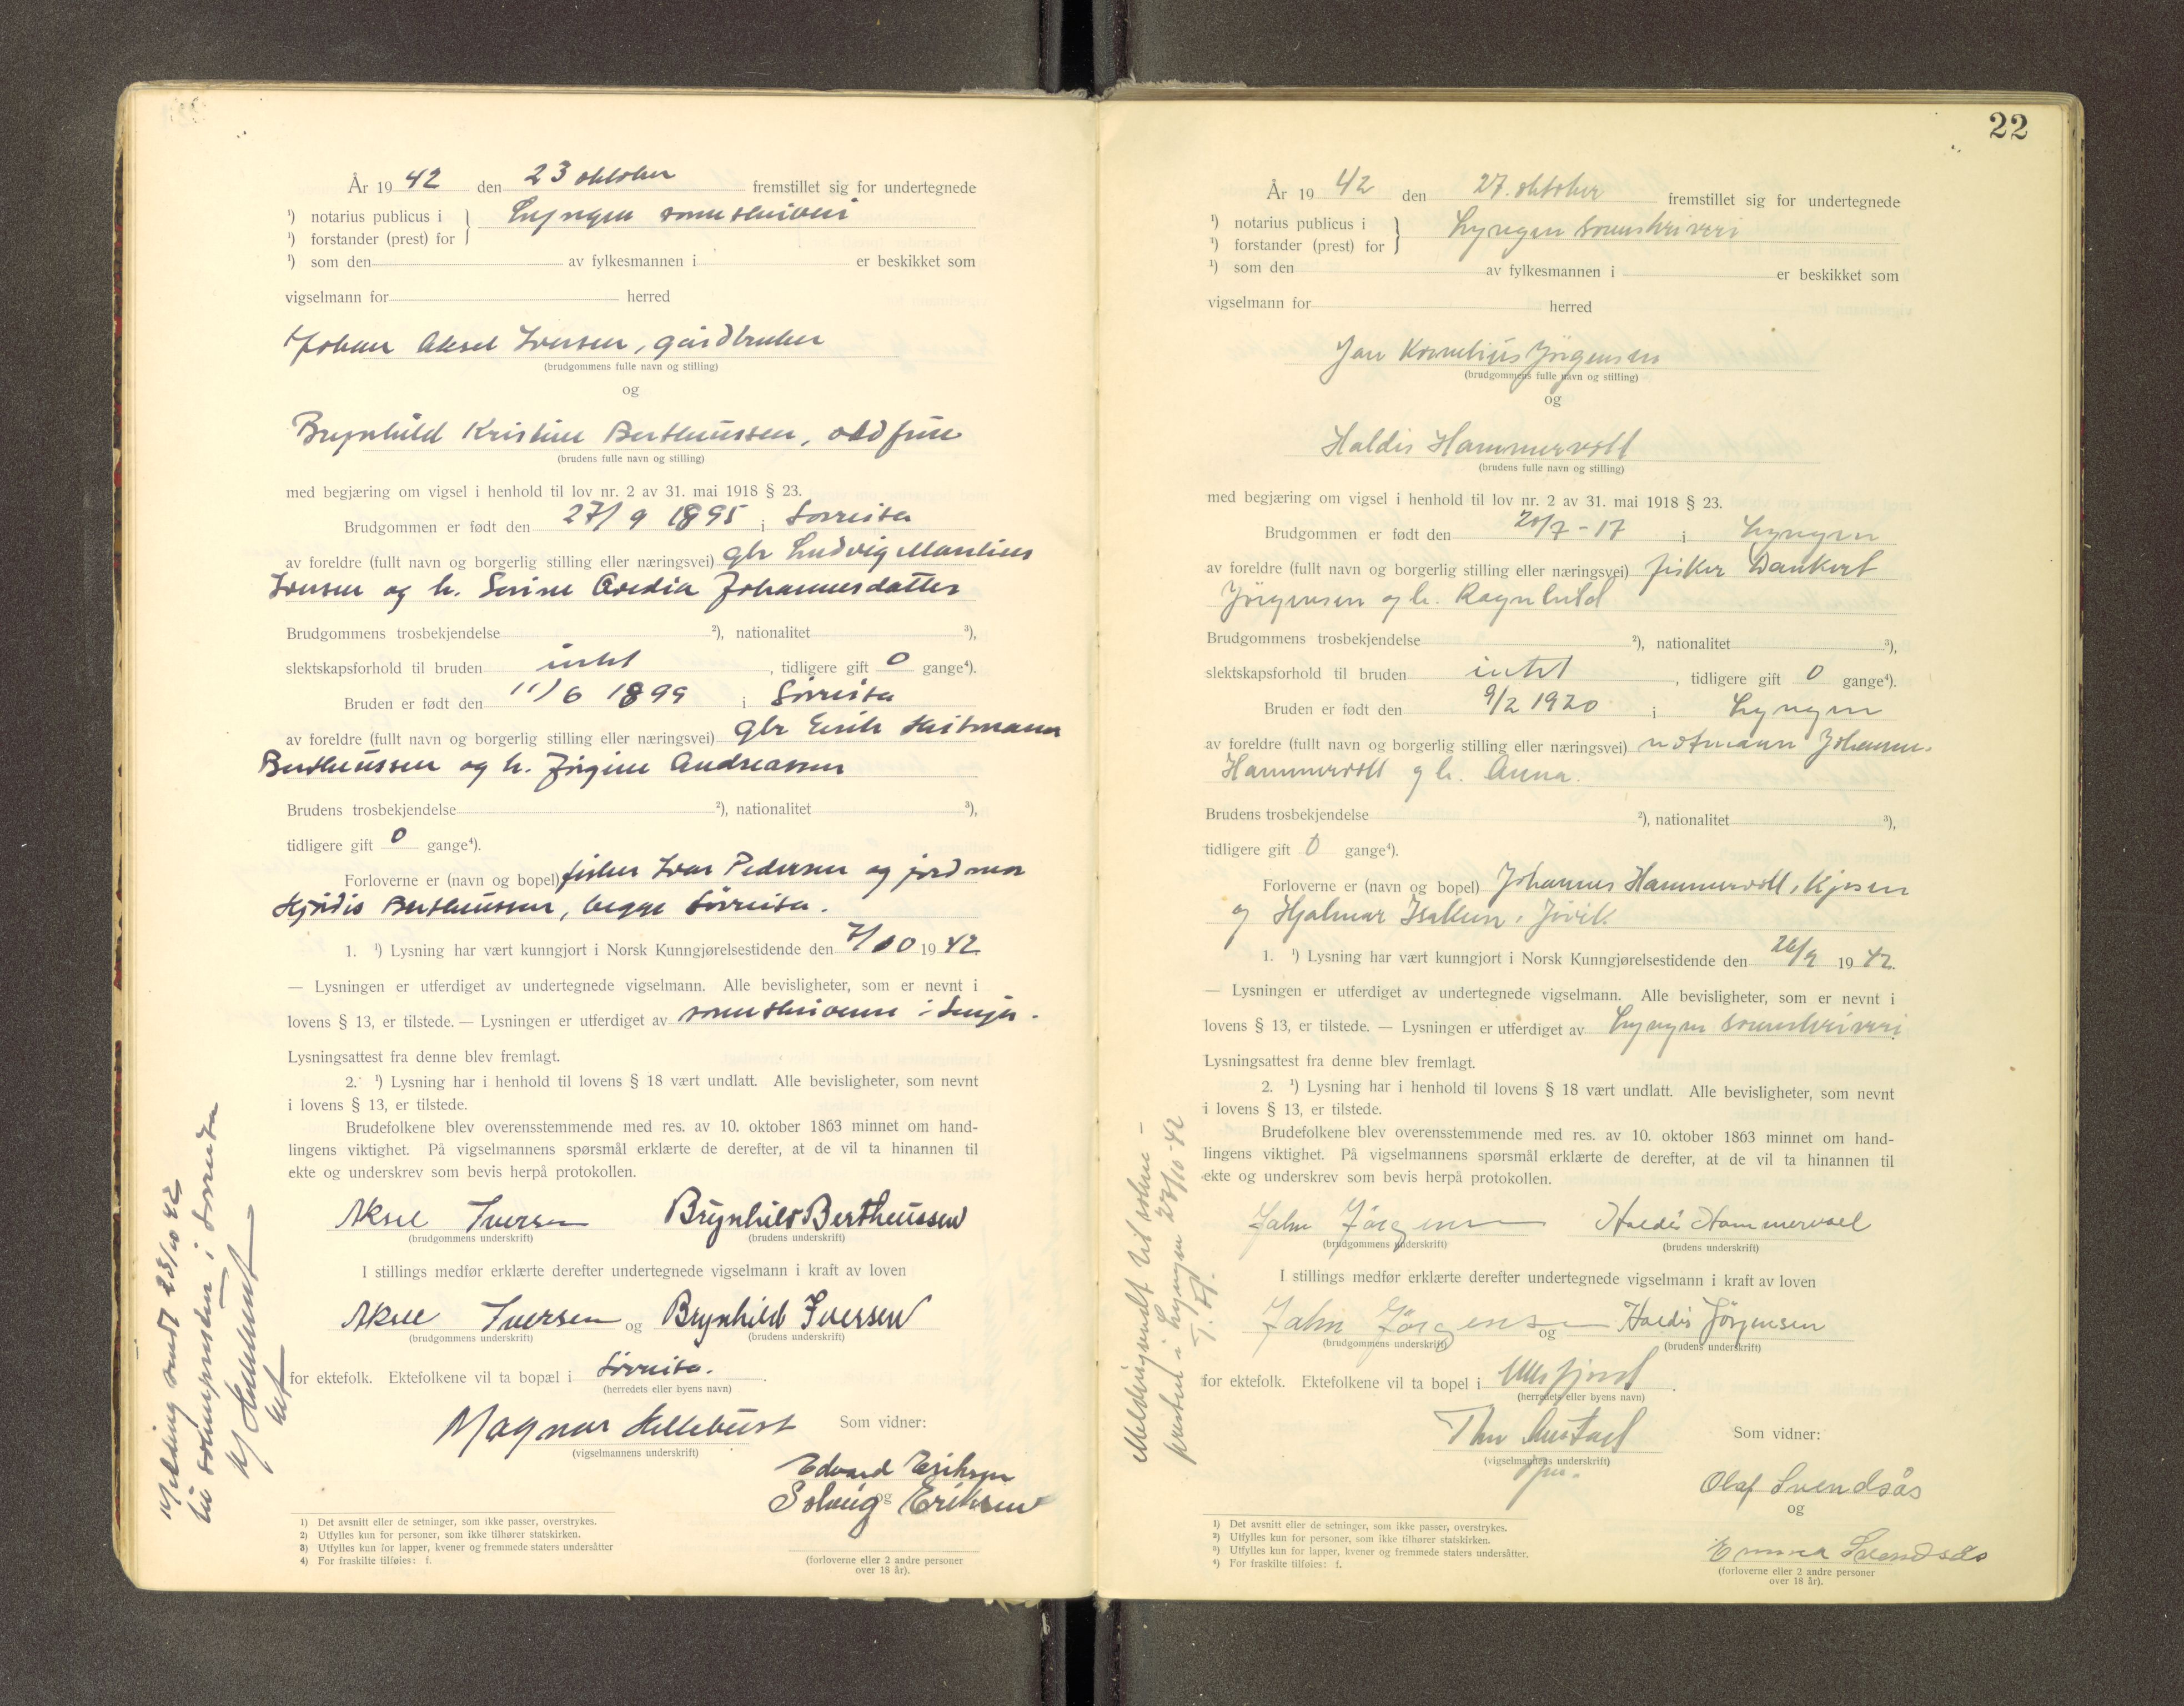 År 1942 den 23 oktober fremstillet sig for undertegnede
¹) notarius publicus i } Lyngen sorenskriveri
¹) forstander (prest) for
¹) som den av fylkesmannen i er beskikket som
vigselmann for herred
Johan Aksel Iversen, gårdbruker
(brudgommens fulle navn og stilling)
og
Brynhild Kristine Bertheussen, oldfrue
(brudens fulle navn og stilling)
med begjæring om vigsel i henhold til lov nr. 2 av 31. mai 1918 § 23.
Brudgommen er født den 27/9 1895 i Sørreisa
av foreldre (fullt navn og borgerlig stilling eller næringsvei) gbr Ludvig
Iversen og h. Serine Johannesdatter
Brudgommens trosbekjendelse ²), nationalitet ³),
slektskapsforhold til bruden intet, tidligere gift 0 gange⁴).
Bruden er født den 11/6 1899 i Sørreisa
av foreldre (fullt navn og borgerlig stilling eller næringsvei) gbr Erik Hitmann
Bertheussen og h. Jørgine Andreassen
Brudens trosbekjendelse ²), nationalitet ³),
tidligere gift 0 gange⁴).
Forloverne er (navn og bopel) fisker Ivar Pedersen og jordmor
Hjørdis Bertheussen, begge Sørreisa.
1. ¹) Lysning har vært kunngjort i Norsk Kunngjørelsestidende den 7/10 1942
— Lysningen er utferdiget av undertegnede vigselmann. Alle bevisligheter, som er nevnt i
lovens § 13, er tilstede. — Lysningen er utferdiget av sorenskriveren i Senja.
Lysningsattest fra denne blev fremlagt.
2. ¹) Lysning har i henhold til lovens § 18 vært undlatt. Alle bevisligheter, som nevnt
i lovens § 13, er tilstede.
Brudefolkene blev overensstemmende med res. av 10. oktober 1863 minnet om hand-
lingens viktighet. På vigselmannens spørsmål erklærte de derefter, at de vil ta hinannen til
ekte og underskrev som bevis herpå protokollen.
Aksel Iversen Brynhild Bertheussen
(brudgommens underskrift) (brudens underskrift)
I stillings medfør erklærte derefter undertegnede vigselmann i kraft av loven
Aksel Iversen og Brynhild Iversen
(brudgommens underskrift) (brudens underskrift)
for ektefolk. Ektefolkene vil ta bopæl i Sørreisa.
(herredets eller byens navn)
Magnar Hellebust Som vidner:
(vigselmannens underskrift)
Edvard Eriksen
og
Solveig Eriksen
(forloverne eller 2 andre personer
over 18 år).
1) Det avsnitt eller de setninger, som ikke passer, overstrykes.
2) Utfylles kun for personer, som ikke tilhører statskirken.
3) Utfylles kun for lapper, kvener og fremmede staters undersåtter
4) For fraskilte tilføies: f.
Melding sendt 23/10 42
til sognepresten i Sørreisa
M Hellebust
22
År 1942 den 27. oktober fremstillet sig for undertegnede
¹) notarius publicus i } Lyngen sorenskriveri
¹) forstander (prest) for
¹) som den av fylkesmannen i er beskikket som
vigselmann for herred
Jan Kornelius Jörgensen
(brudgommens fulle navn og stilling)
og
Haldis Hammervoll
(brudens fulle navn og stilling)
med begjæring om vigsel i henhold til lov nr. 2 av 31. mai 1918 § 23.
Brudgommen er født den 20/7-17 i Lyngen
av foreldre (fullt navn og borgerlig stilling eller næringsvei) fisker Dankert
Jörgensen og h. Ragnhild
Brudgommens trosbekjendelse ²), nationalitet ³),
slektskapsforhold til bruden intet, tidligere gift 0 gange⁴).
Bruden er født den 9/2 1920 i Lyngen
av foreldre (fullt navn og borgerlig stilling eller næringsvei) notmann Johannes
Hammervoll og h. Anna.
Brudens trosbekjendelse ²), nationalitet ³),
tidligere gift 0 gange⁴).
Forloverne er (navn og bopel) Johannes Hammervoll, Kjosen
og Hjalmar Isaksen, Jövik
1. ¹) Lysning har vært kunngjort i Norsk Kunngjørelsestidende den 26/9 1942.
— Lysningen er utferdiget av undertegnede vigselmann. Alle bevisligheter, som er nevnt i
lovens § 13, er tilstede. — Lysningen er utferdiget av Lyngen sorenskriveri
Lysningsattest fra denne blev fremlagt.
2. ¹) Lysning har i henhold til lovens § 18 vært undlatt. Alle bevisligheter, som nevnt
i lovens § 13, er tilstede.
Brudefolkene blev overensstemmende med res. av 10. oktober 1863 minnet om hand-
lingens viktighet. På vigselmannens spørsmål erklærte de derefter, at de vil ta hinannen til
ekte og underskrev som bevis herpå protokollen.
Jahn Jørgensen Haldis Hammervoll
(brudgommens underskrift) (brudens underskrift)
I stillings medfør erklærte derefter undertegnede vigselmann i kraft av loven
Jahn Jørgensen og Haldis Jørgensen
(brudgommens underskrift) (brudens underskrift)
for ektefolk. Ektefolkene vil ta bopel i Ullsfjord.
(herredets eller byens navn)
Thv Austad Som vidner:
(vigselmannens underskrift)
Olaf Svendsås
og
Emma Svendsås
(forloverne eller 2 andre personer
over 18 år).
¹) Det avsnitt eller de setninger, som ikke passer, overstrykes.
²) Utfylles kun for personer, som ikke tilhører statskirken.
³) Utfylles kun for lapper, kvener og fremmede staters undersåtter.
⁴) For fraskilte tilføies: f.
Melding sendt til sokne-
presten i Lyngen 27/10-42
T. A.